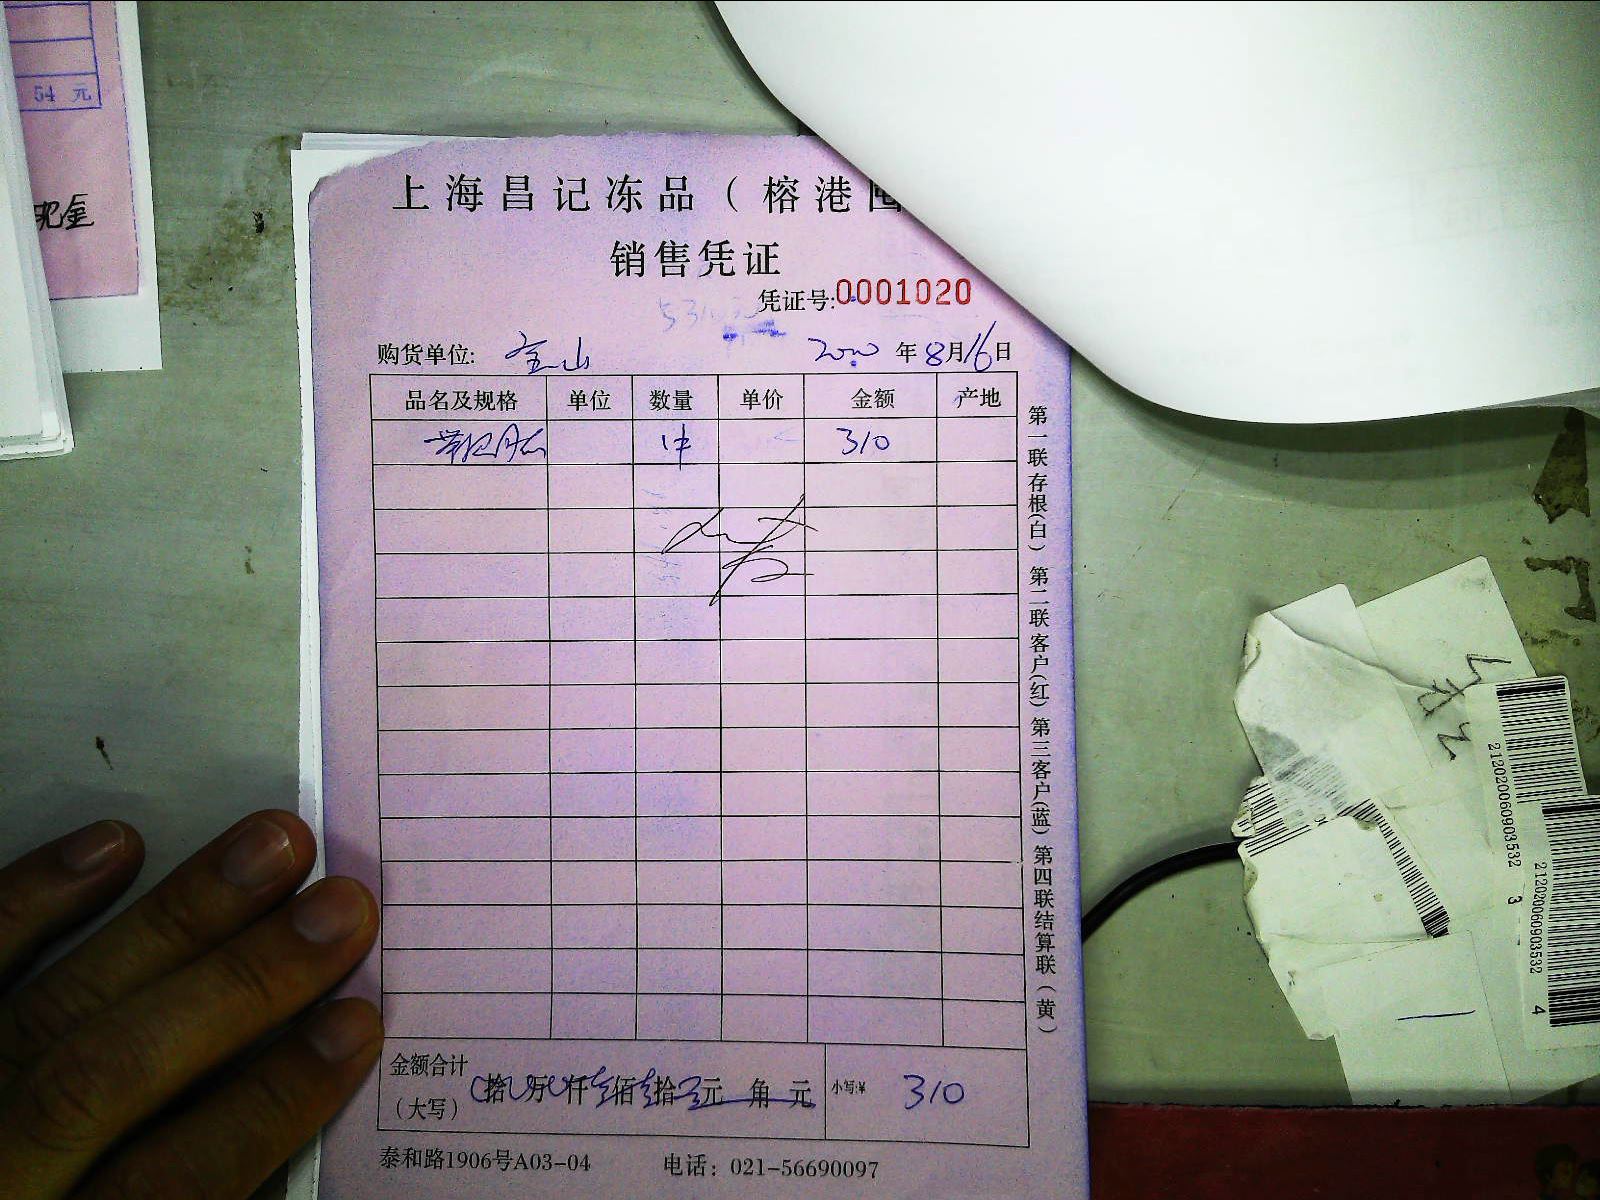 54 元
现金
上海昌记冻品（榕港
销售凭证
凭证号:0001020
购货单位: 宝山 2020 年 8 月 16 日
品名及规格 单位 数量 单价 金额 产地
1件 310
第一联存根(白) 第二联客户(红) 第三客户(蓝) 第四联结算联(黄)
金额合计
(大写) 拾 万 仟叁佰壹拾零元 角 元 小写:¥ 310
泰和路1906号A03-04 电话：021-56690097
212020060903532 3
212020060903532 4